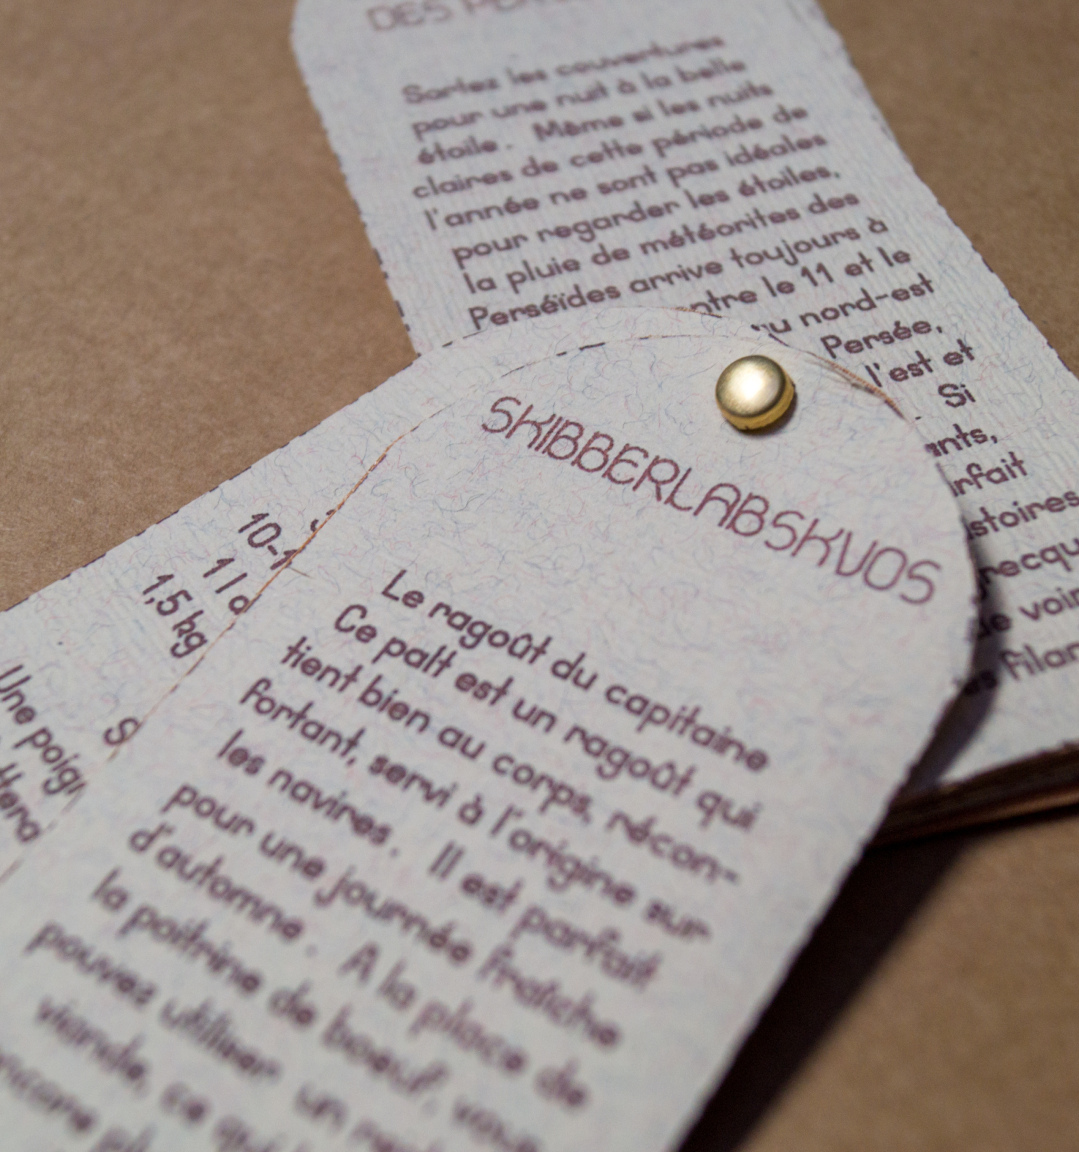 DES
Sortez les couvertures
pour une nuit à la belle
étoile. Même si les nuits
claires de cette période de
l'année ne sont pas idéales
pour regarder les étoiles,
la pluie de météorites des
Perséïdes arrive toujours à
ntre le 11 et le
u nord-est
Persée,
l'est et
Si
ants,
rfait
stoires
recqu
de voir
es filan
SKIBBERLABSKVOS
Le ragoût du capitaine
Ce palt est un ragoût qui
tient bien au corps, récon-
fortant, servi à l'origine sur
les navires. Il est parfait
pour une journée fraîche
d'automne. A la place de
la poitrine de boeuf, vous
pouvez utiliser un
viande, ce qui
10-1
1 l d
1,5 kg
S
Une poign